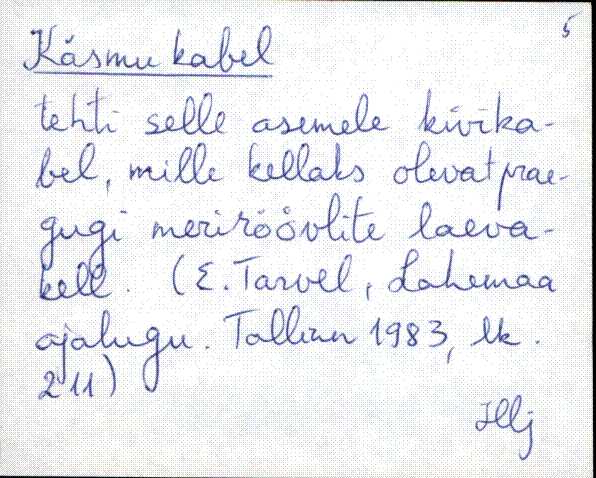 5
Käsmu kabel
tehti selle asemele kivika-
bel, mille kellaks olevat prae-
gugi meriröövlite laeva-
kell. (E. Tarvel, Lahemaa
ajalugu. Tallinn 1983, lk.
211)